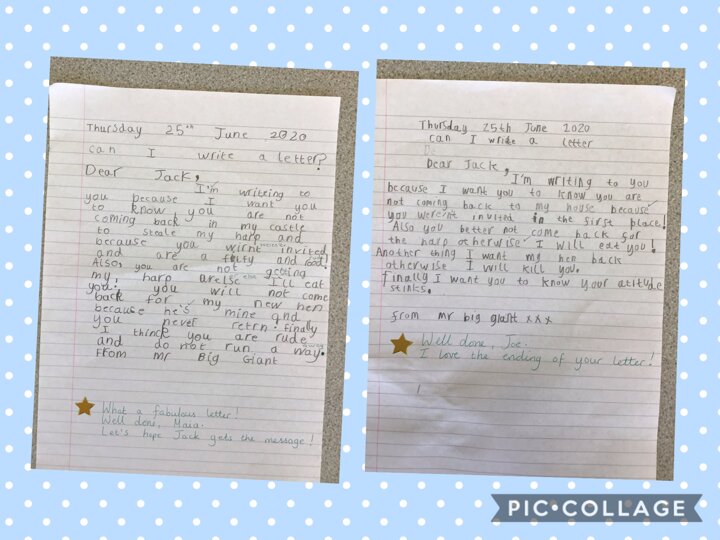 Thursday 25th June 2020
can I write a letter?
Dear Jack,
I'm writeing to
you because I want you
to know you are not
coming back in my castle
to steale my harp and
because you wirnt invited
and are a
Also, you are not getting
my harp arelse else I'll eat
you. you will not come
back for my new hen
because he's mine and
you never retrn. finally
I thinck you are rude
and do not run a way.
From mr Big Giant
What a fabulous letter!
Well done, Maia.
Let's hope Jack gets the message!
Thursday 25th June 2020
can I write a letter
Dear Jack,
I'm writing to you
because I want you to know you are
not coming back to my house because
you weren't invited in the first place!
Also you better not come back for
the harp otherwise I will eat you!
Another thing I want my hen back
otherwise I will kill you.
Finally I want you to know your atityde
stinks.
from mr big giant xxx
Well done, Joe.
I love the ending of your letter!
PIC•COLLAGE